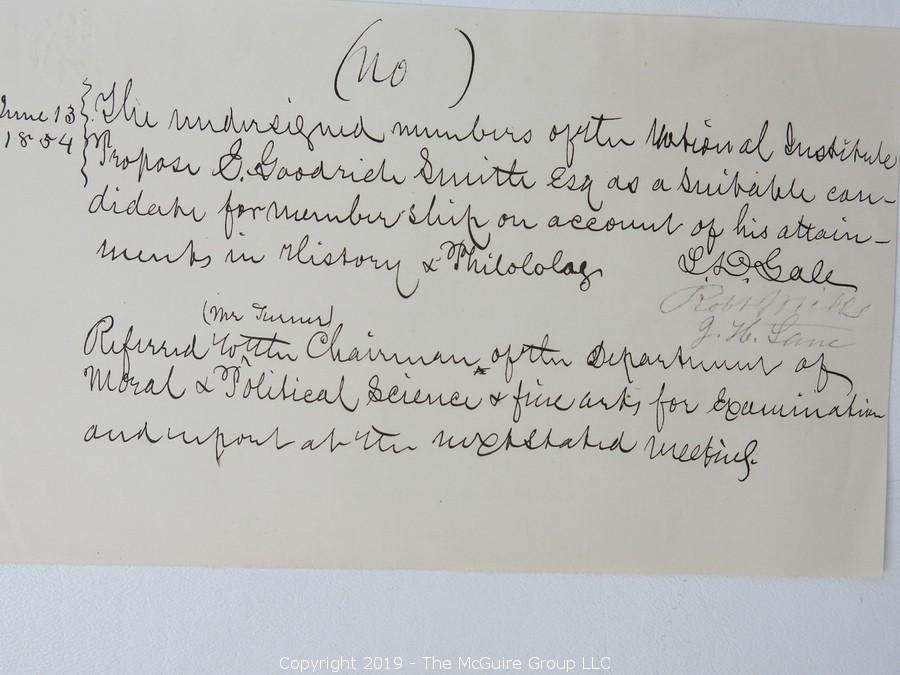 (No)
June 13
1854
The undersigned members of the National Institute
Propose S. Goodrich Smith Esq as a suitable can-
didate for membership on account of his attain-
ments in History & Philology
L. D. Gale
Robt Mills
J. H. Lane
(Mr Turner)
Referred to the Chairman of the Department of
Moral & Political Science & fine arts for Examination
and report at the next stated meeting.
Copyright 2019 - The McGuire Group LLC